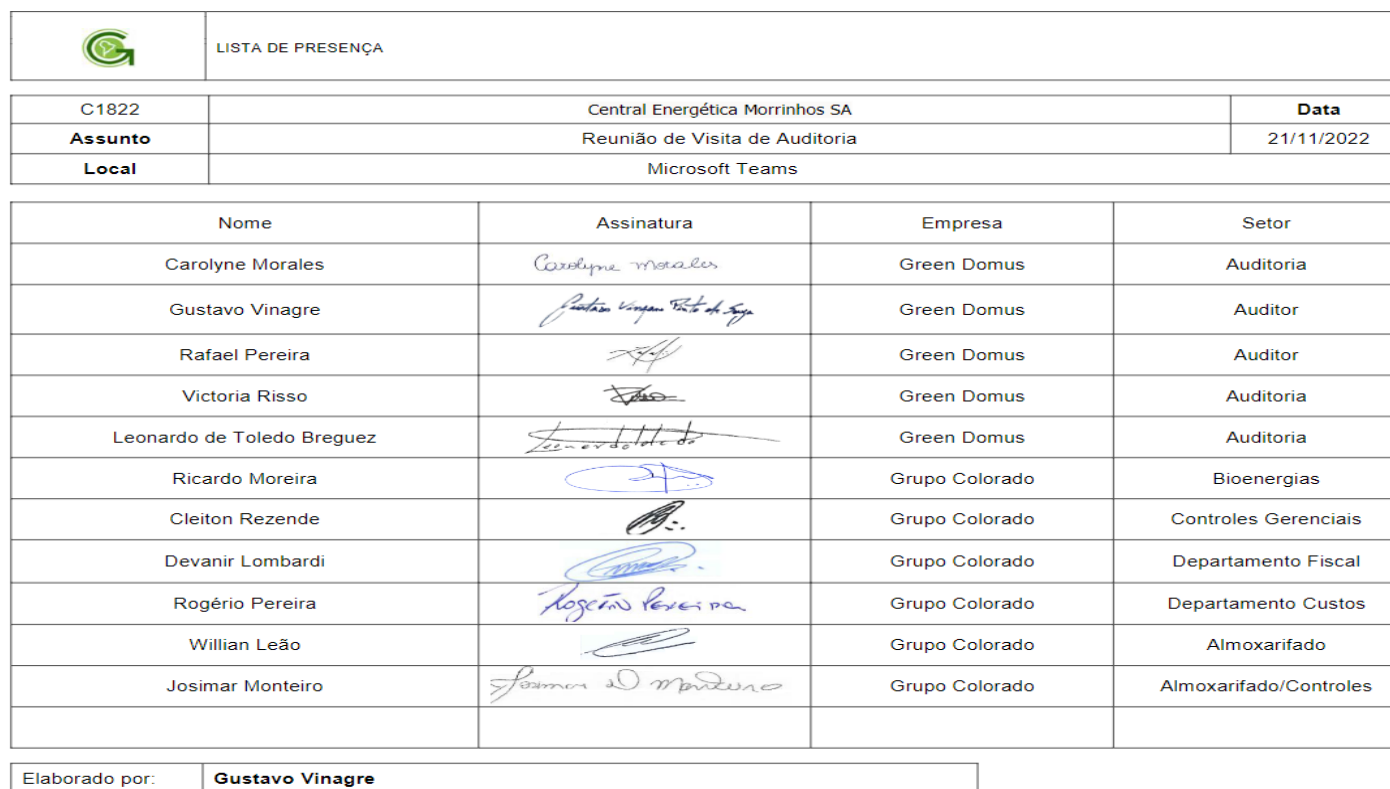 LISTA DE PRESENÇA
C1822 Central Energética Morrinhos SA Data
Assunto Reunião de Visita de Auditoria 21/11/2022
Local Microsoft Teams
Nome Assinatura Empresa Setor
Carolyne Morales Carolyne Morales Green Domus Auditoria
Gustavo Vinagre Green Domus Auditor
Rafael Pereira Green Domus Auditor
Victoria Risso Green Domus Auditoria
Leonardo de Toledo Breguez Green Domus Auditoria
Ricardo Moreira Grupo Colorado Bioenergias
Cleiton Rezende Grupo Colorado Controles Gerenciais
Devanir Lombardi Grupo Colorado Departamento Fiscal
Rogério Pereira Rogério Pereira Grupo Colorado Departamento Custos
Willian Leão Grupo Colorado Almoxarifado
Josimar Monteiro Josimar D Monteiro Grupo Colorado Almoxarifado/Controles
Elaborado por: Gustavo Vinagre